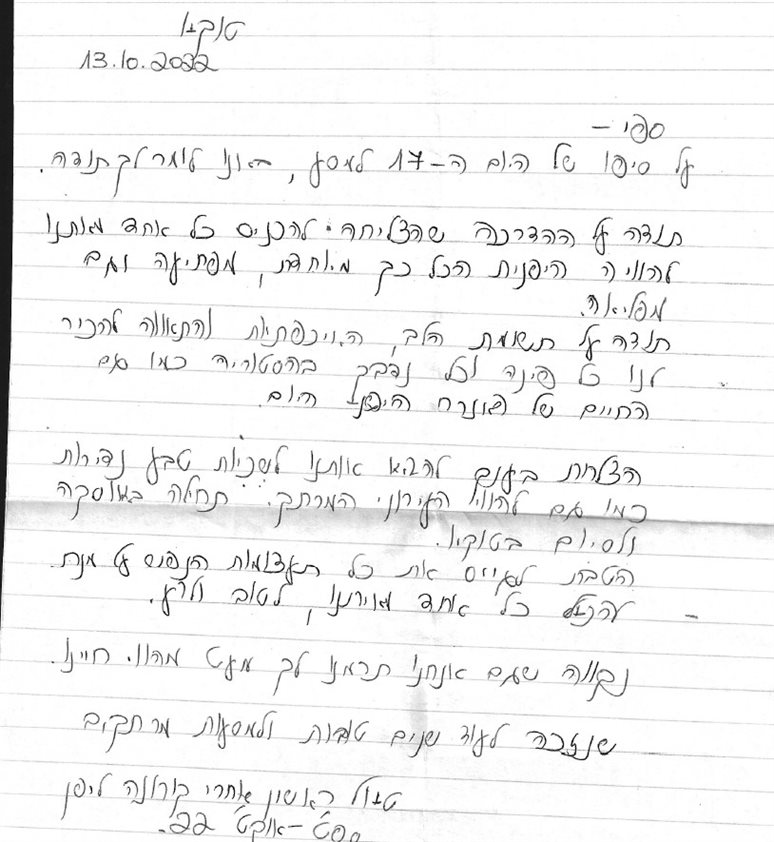 טוקיו
13.10.2022
ספי –
על סיפו של היום ה-17 למסע, באנו לומר לך תודה.
תודה על ההדרכה שהצליחה להכניס כל אחד מאותנו
להוויה היפנית הכל כך מיוחדת, מפתיעה וגם
מפליאה.
תודה על תשומת הלב, האיכפתיות והתאווה להכיר
לנו כל פינה וכל נדבך בהסטוריה כמו גם
החיים של האזרח היפני היום.
הצלחת בענק להביא אותנו לשכיות טבע נדירות
כמו גם להווי העירוני המרתק. תחילה באוסקה
ולסיום בטוקיו.
היטבת לגייס את כל תעצומות הנפש על מנת
להכיל כל אחד מאיתנו, לטוב ולרע.
נקווה שגם אנחנו תרמנו לך מעט מהווי חיינו.
שנזכה לעוד שנים טובות ולמסעות מרתקים
טיול ראשון אחרי קורונה ליפן
ספט'-אוקט' 22.